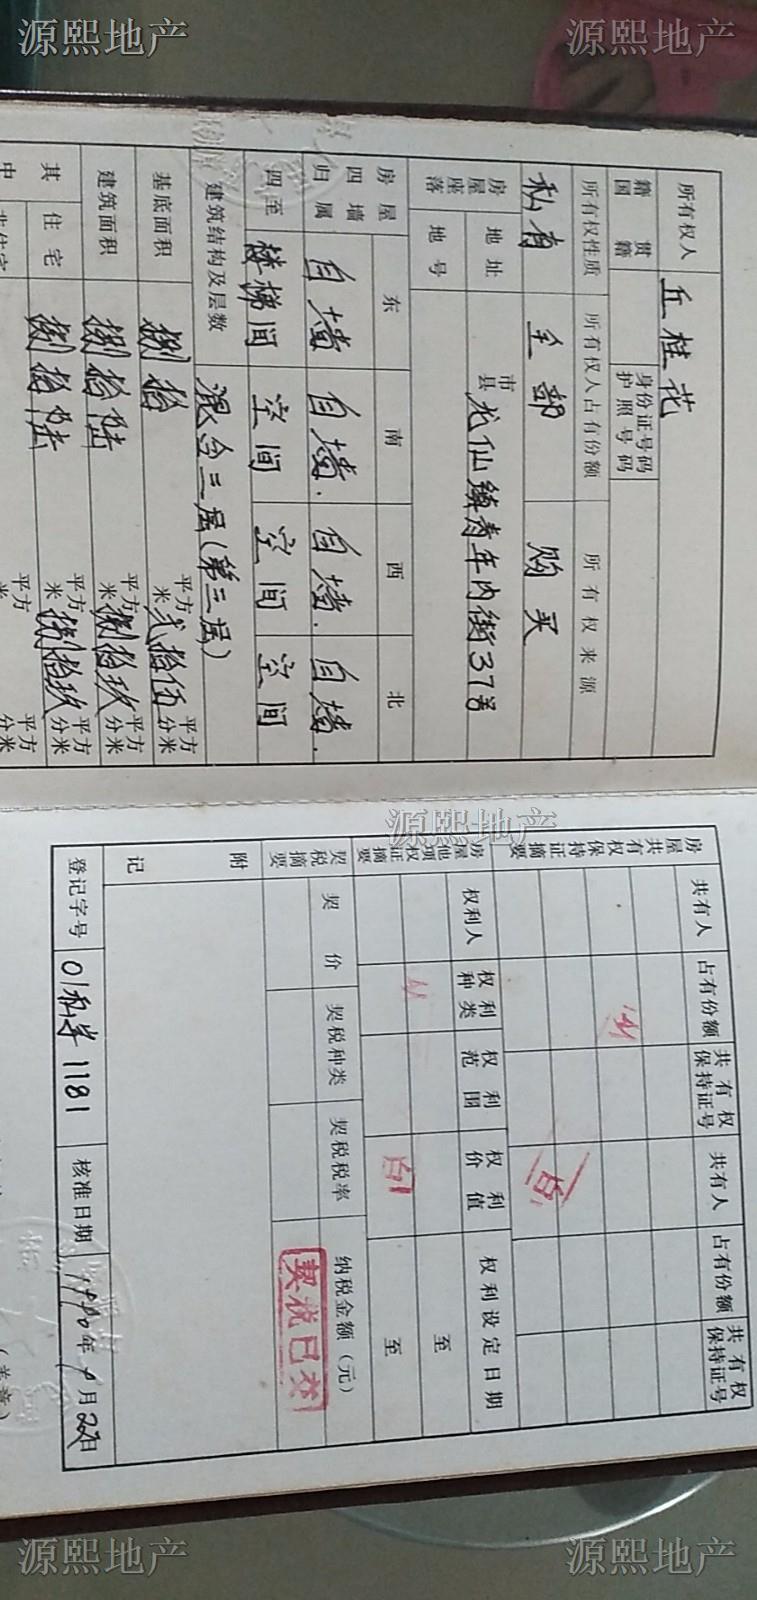 源熙地产
源熙地产
所有权人 丘桂花
籍贯 国籍 身份证号码 护照号码
所有权性质 所有权人占有份额 所有权来源
私有 全部 购买
房屋座落 地址 市县 龙仙镇青年内街37号
地号
房屋四墙归属 东 南 西 北
自墙 自墙. 自墙. 自墙.
四至 楼梯间 空间 空间 空间
建筑结构及层数 混合三层(第三层)
基底面积 捌拾 平方米 贰拾伍 平方分米
建筑面积 捌拾陆 平方米 捌拾玖 平方分米
其中 住宅 捌拾陆 平方米 捌拾玖 平方分米
非住宅 平方米 平方分米
源熙地产
房屋共有权保持证摘要 共有人 占有份额 共有权保持证号 共有人 占有份额 共有权保持证号
房屋他项权证摘要 权利人 权利种类 权利范围 权利价值 权利设定日期
至
至
契税摘要 契价 契税种类 契税税率 纳税金额(元)
契税已交
附记
登记字号 01私字1181 核准日期 1990年9月 日
(盖章)
源熙地产
源熙地产